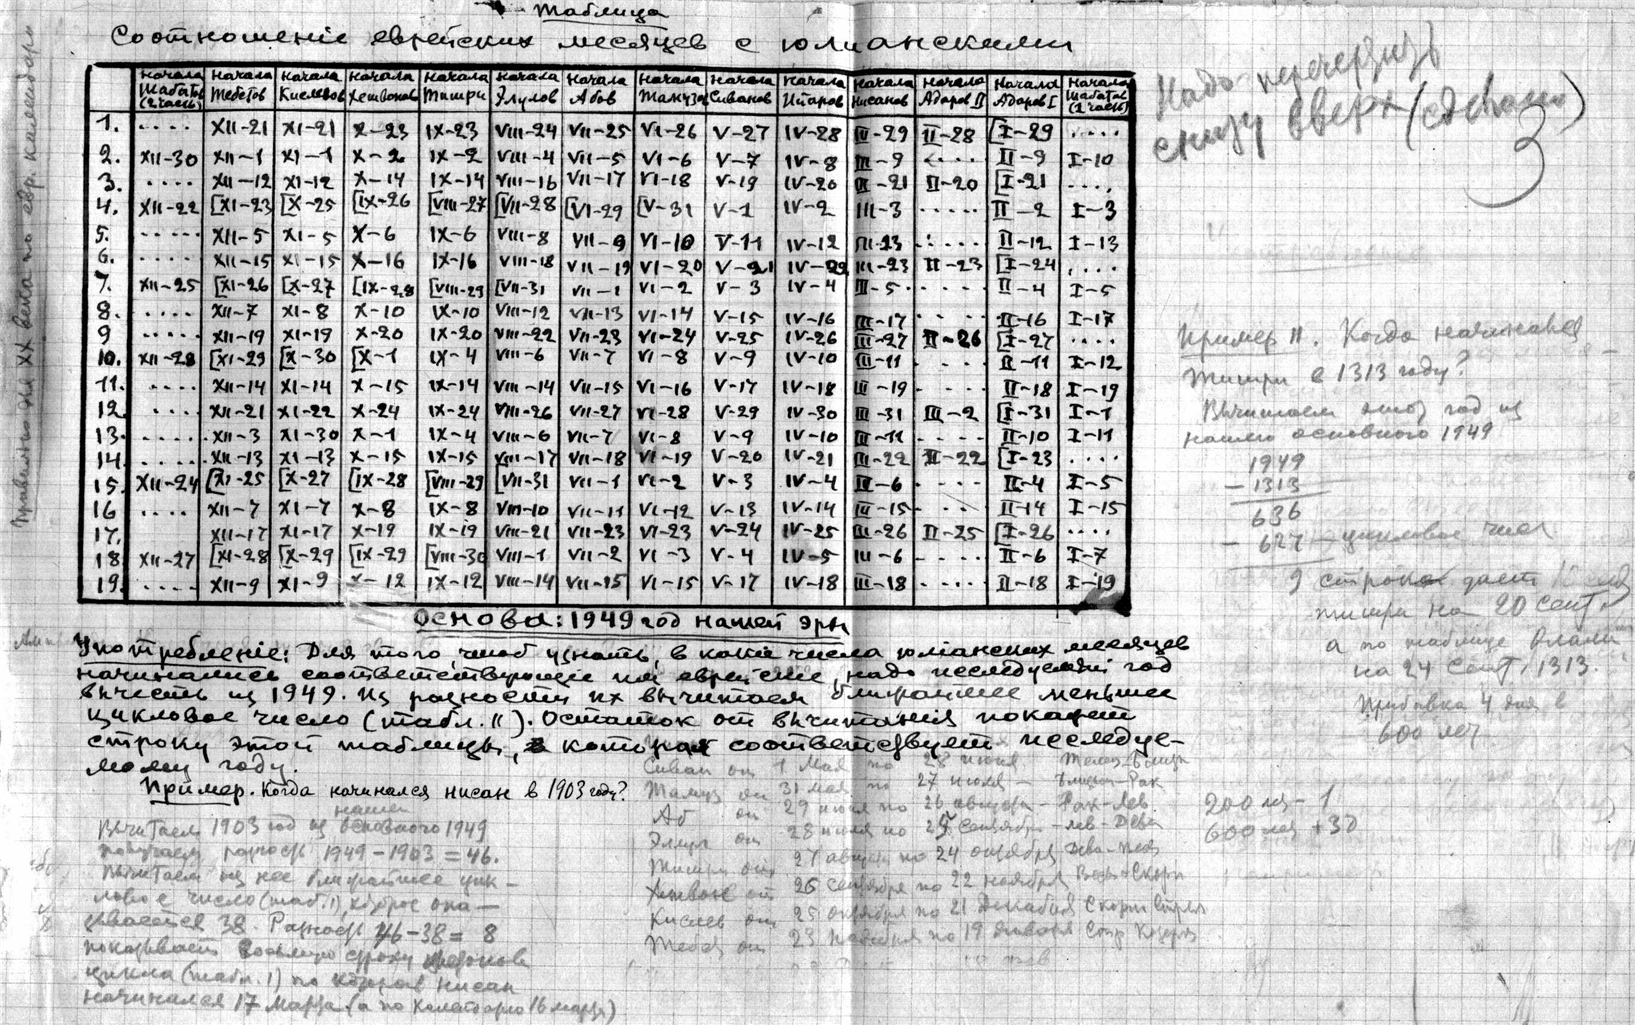 Таблица
Соотношеніе еврейских месяцев с юлианскими
Начала Шабатов (2 часть) | Начала Тебетов | Начала Кислевов | Начала Хешвонов | Начала Тишри | Начала Элулов | Начала Абов | Начала Тамузов | Начала Сиванов | Начала Ияров | Начала Нисанов | Начала Адаров II | Начала Адаров I | Начала Шабатов (2 часть)
1. .... XII-21 XI-21 X-23 IX-23 VIII-24 VII-25 VI-26 V-27 IV-28 III-29 II-28 [I-29 ....
2. XII-30 XII-1 XI-1 X-2 IX-2 VIII-4 VII-5 VI-6 V-7 IV-8 III-9 .... II-9 I-10
3. .... XII-12 XI-12 X-14 IX-14 VIII-16 VII-17 VI-18 V-19 IV-20 III-21 II-20 [I-21 ....
4. XII-22 [XI-23 [X-25 [IX-26 [VIII-27 [VII-28 [VI-29 [V-31 V-1 IV-2 III-3 ..... II-2 I-3
5. ..... XII-5 XI-5 X-6 IX-6 VIII-8 VII-9 VI-10 V-11 IV-12 III-23 ..... II-12 I-13
6. .... XII-15 XI-15 X-16 IX-16 VIII-18 VII-19 VI-20 V-21 IV-22 III-23 II-23 [I-24 ....
7. XII-25 [XI-26 [X-27 [IX-28 [VIII-29 [VII-31 VII-1 VI-2 V-3 IV-4 III-5 .... II-4 I-5
8. .... XII-7 XI-8 X-10 IX-10 VIII-12 VII-13 VI-14 V-15 IV-16 III-17 .... II-16 I-17
9 .... XII-19 XI-19 X-20 IX-20 VIII-22 VII-23 VI-24 V-25 IV-26 III-27 II-26 [I-27 ....
10. XII-28 [XI-29 [X-30 [X-1 IX-4 VIII-6 VII-7 VI-8 V-9 IV-10 III-11 .... II-11 I-12
11. .... XII-14 XI-14 X-15 IX-14 VIII-14 VII-15 VI-16 V-17 IV-18 III-19 .... II-18 I-19
12 .... XII-21 XI-22 X-24 IX-24 VIII-26 VII-27 VI-28 V-29 IV-30 III-31 III-2 [I-31 I-1
13. ..... XII-3 XI-30 X-1 IX-4 VIII-6 VII-7 VI-8 V-9 IV-10 III-11 .... II-10 I-11
14. ..... XII-13 XI-13 X-15 IX-15 VIII-17 VII-18 VI-19 V-20 IV-21 III-22 II-22 [I-23 ....
15. XII-24 [XI-25 [X-27 [IX-28 [VIII-29 [VII-31 VII-1 VI-2 V-3 IV-4 III-6 ... II-4 I-5
16 .... XII-7 XI-7 X-8 IX-8 VIII-10 VII-11 VI-12 V-13 IV-14 III-15 ... II-14 I-15
17. XII-17 XI-17 X-19 IX-19 VIII-21 VII-23 VI-23 V-24 IV-25 III-26 II-25 [I-26 ....
18 XII-27 [XI-28 [X-29 [IX-29 [VIII-30 VIII-1 VII-2 VI-3 V-4 IV-5 III-6 .... II-6 I-7
19. .... XII-9 XI-9 X-12 IX-12 VIII-14 VII-15 VI-15 V-17 IV-18 III-18 ..... II-18 I-19
Основа: 1949 год нашей эры
Употребленіе: Для того, чтоб узнать, в какіе числа юліанских месяцев
начинались соответствующіе им еврейскіе, надо исследуемый год
вычесть из 1949. Из разности их вычитаем ближайшее меньшее
цикловое число (табл. II). Остаток от вычитания покажет
строку этой таблицы, которая соответствует исследуе-
мому году.
Пример. Когда начинался нисан в 1903 году?
Вычитаем 1903 год из нашего основного 1949
получаем разность 1949-1903=46.
Вычитаем из нее ближайшее цик-
ловое число (таб. I), которое ока-
зывается 38. Разность 46-38=8
показывает восьмую строку
цикла (табл. I) по которой нисан
начинался 17 марта (а по календарю 16 марта)
Сиван от 1 мая по 28 июня
Тамуз от 31 мая по 27 июля - Рак
Аб от 29 июня по 26 августа - Рак-Лев
Элул от 28 июля по 25 сентября - Лев-Дева
Тишри от 27 августа по 24 октября
Хешвон от 26 сентября по 22 ноября
Кислев от 25 октября по 21 декабря
Тебет от 23 ноября по 19 января
Надо перечертить
снизу вверх (сделано)
3
Пример II. Когда начинался
Тишри в 1313 году?
Вычитаем этот год из
нашего основного 1949
1949
- 1313
636
- 627 - цикловое число
9 строка дает
тишри на 20 сент.
а по таблице
на 24 сент. 1313.
Прибавка 4 дня в
600 лет
200 лет - 1
600 лет + 3
Правильно для XX века по евр. календарю